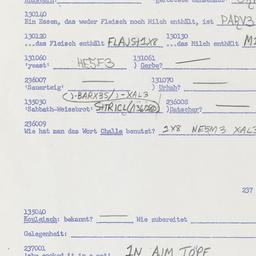 131040
Ein Essen, das weder Fleisch noch Milch enthält, ist PARV3
130120 130130
...das Fleisch enthält FLAJŠI1X8 ...das Milch enthält
131060 131061
'yeast' HE5F3 ) Gerbe?
236007 131070
'Sauerteig' ) Urhab?
( )-BARX3S/ )-XAL3
135030 236008
'Sabbath-Weissbrot' ŠTRICL(/136060) )Datscher?
236009
Wie hat man das Wort Challe benutzt? 1X8 NE5M3 XAL3
237
135040
Kouletsch: bekannt? Wie zubereitet
Gelegenheit:
237001 IN AJM TOPF